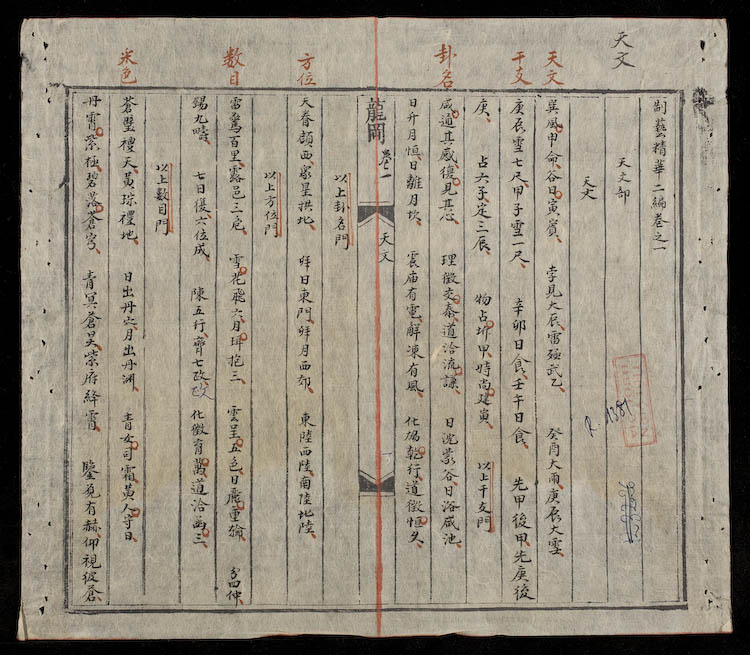 天文
天文
干支
卦名
方位
数目
采色
制藝精華二編卷之一
天文部
天文
巽風申命谷日寅賓 孛見大辰雷殛武乙 癸酉大雨庚辰大雪
庚辰雪七尺甲子雪一尺 辛卯日食壬午日食 先甲後甲先庚後
庚 占六子定三辰 物占坼甲時尚建寅 以上干支門
咸通其感復見其心 理徵交泰道洽流謙 日沈蒙谷日浴咸池
日升月恒日離月坎 有電解凍有風 化協乾行道徵恒久
以上卦名門
龍岡 卷一 天文 一
天眷西衆星拱北 拜日東門拜月西郊 東陸西陸南陸北陸
以上方位門
雷驚百里露邑三危 雪花飛六月珥抱三 雲呈五色日麗重輪 分四仲
錫九疇 七日復六位成 陳五行齊七政 化徵育萬道洽函三
以上數目門
蒼璧禮天黃琮禮地 日出丹穴月出丹淵 青女司霜黃人守日
丹霄紫極碧落蒼穹 青冥蒼昊紫府絳霄 有赫仰視彼蒼
R.1381